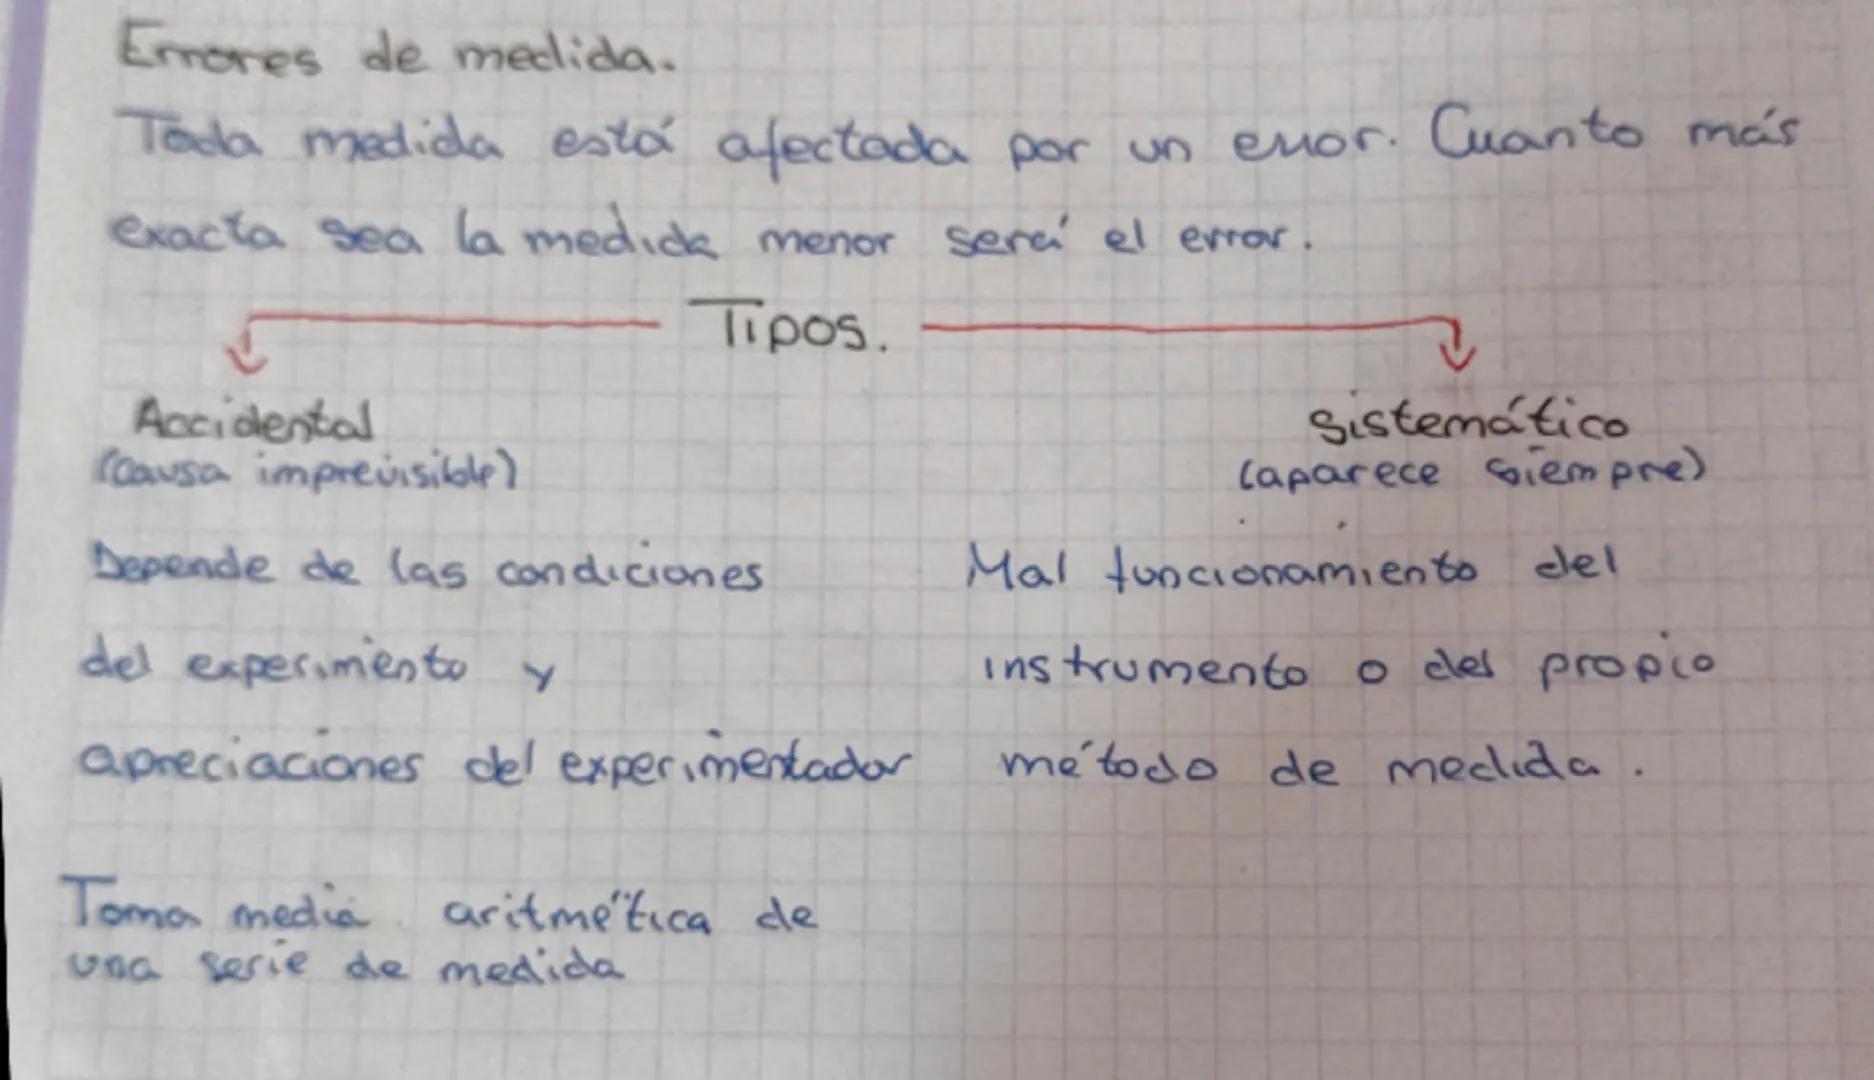 Errores de medida.
Toda medida está afectada por un error. Cuanto más
exacta sea la medida menor será el error.
Tipos.
Accidental
(causa imprevisible)
Depende de las condiciones
del experimento y
apreciaciones del experimentador
Toma media aritmética de
una serie de medida
sistemático
(aparece siempre)
Mal funcionamiento del
instrumento o del propio
método de medida.